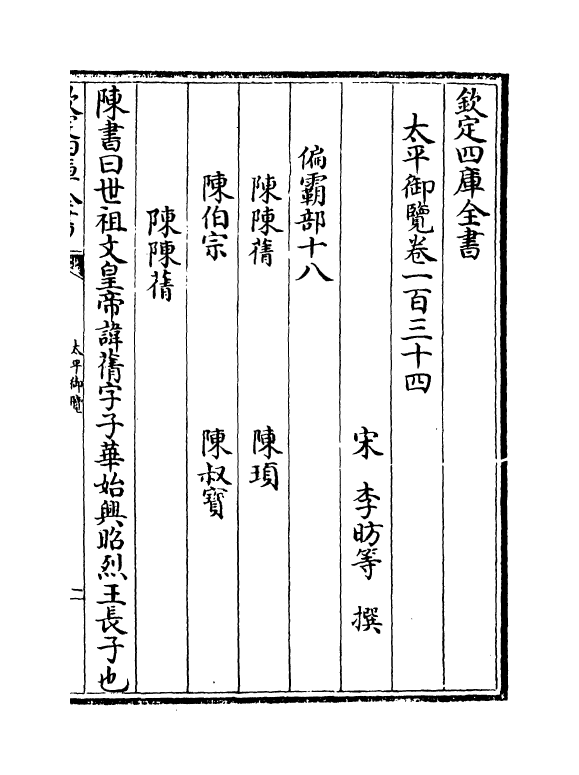 欽定四庫全書
太平御覽卷一百三十四
宋 李昉等 撰
偏霸部十八
陳陳蒨 陳頊
陳伯宗 陳叔寶
陳陳蒨
陳書曰世祖文皇帝諱蒨字子華始興昭烈王長子也
太平御覽
二